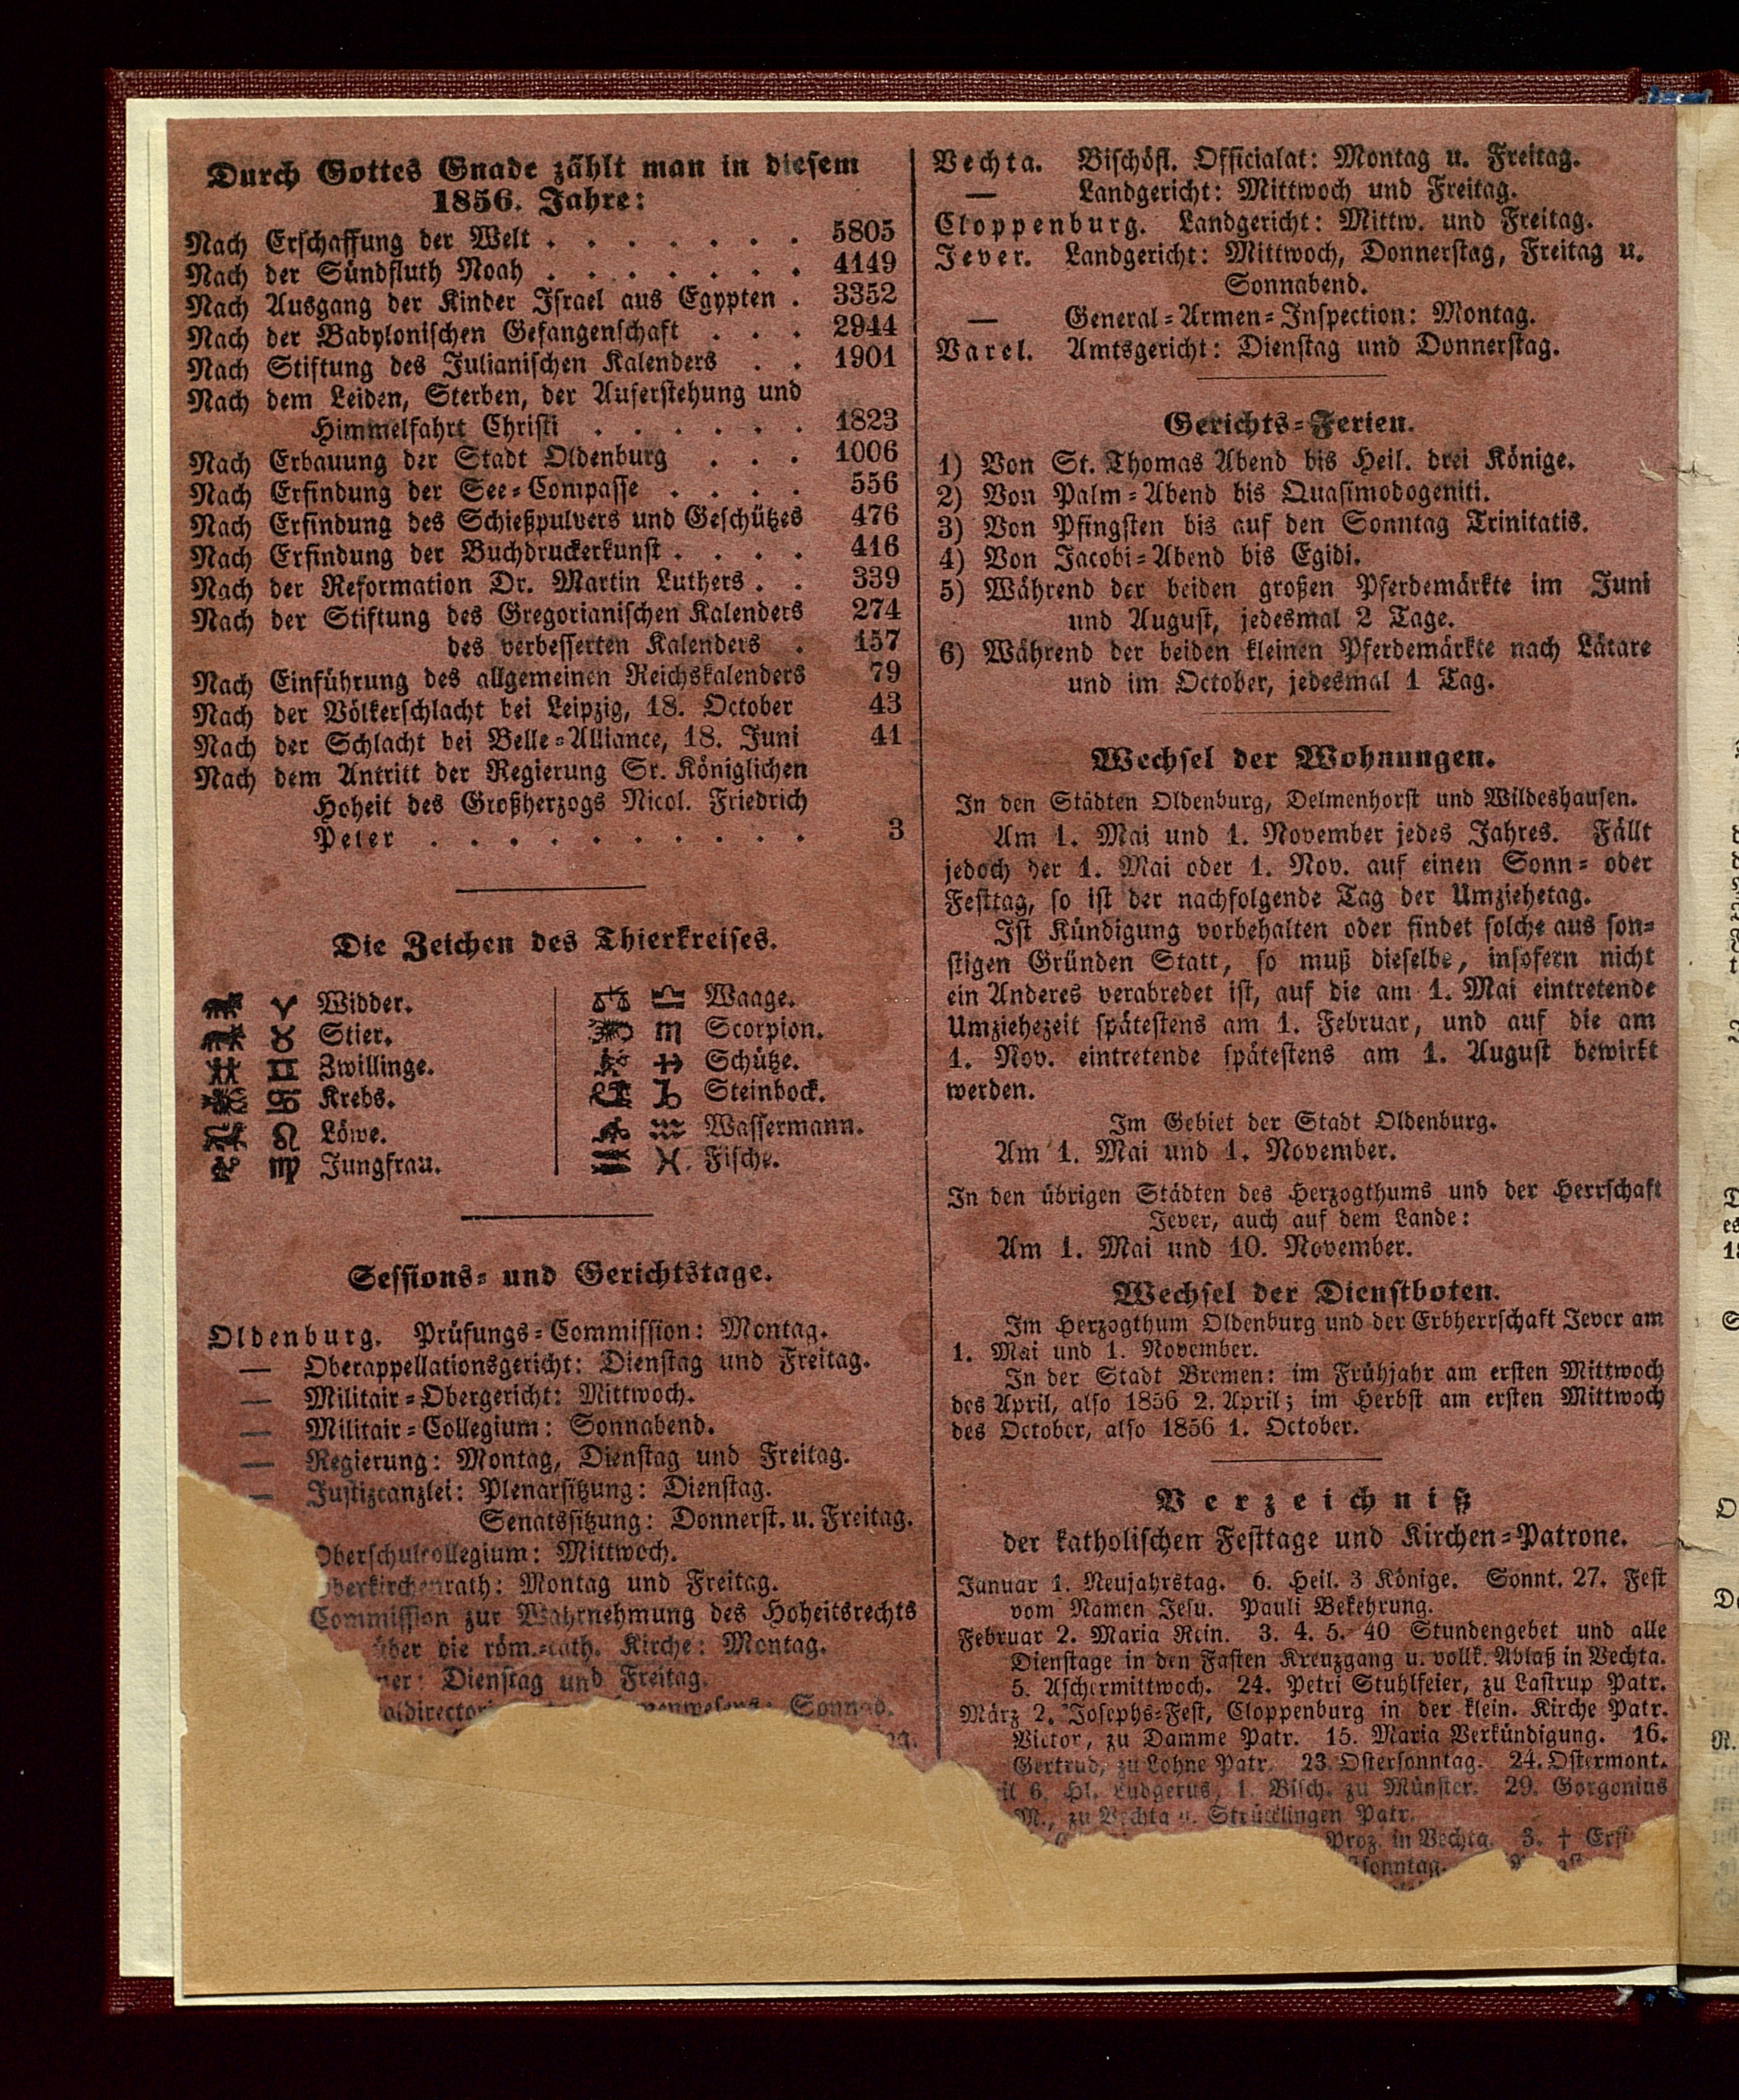 Durch Gottes Gnade zählt man in diesem
1856. Jahre:
Nach Erschaffung der Welt . . . . . . . 5805
Nach der Sündfluth Noah . . . . . . . 4149
Nach Ausgang der Kinder Israel aus Egypten . 3352
Nach der Babylonischen Gefangenschaft . . . 2944
Nach Stiftung des Julianischen Kalenders . . 1901
Nach dem Leiden, Sterben, der Auferstehung und
Himmelfahrt Christi . . . . . . 1823
Nach Erbauung der Stadt Oldenburg . . . 1006
Nach Erfindung der See=Compasse . . . . 556
Nach Erfindung des Schießpulvers und Geschützes 476
Nach Erfindung der Buchdruckerkunst . . . . 416
Nach der Reformation Dr. Martin Luthers . . 339
Nach der Stiftung des Gregorianischen Kalenders 274
des verbesserten Kalenders . 157
Nach Einführung des allgemeinen Reichskalenders 79
Nach der Völkerschlacht bei Leipzig, 18. October 43
Nach der Schlacht bei Belle=Alliance, 18. Juni 41
Nach dem Antritt der Regierung Sr. Königlichen
Hoheit des Großherzogs Nicol. Friedrich
Peter . . . . . . . . . . 3
Die Zeichen des Thierkreises.
♈ Widder.
♉ Stier.
♊ Zwillinge.
♋ Krebs.
♌ Löwe.
♍ Jungfrau.
♎ Waage.
♏ Scorpion.
♐ Schütze.
♑ Steinbock.
♒ Wassermann.
♓ Fische.
Sessions= und Gerichtstage.
Oldenburg. Prüfungs=Commission: Montag.
— Oberappellationsgericht: Dienstag und Freitag.
— Militair=Obergericht: Mittwoch.
— Militair=Collegium: Sonnabend.
— Regierung: Montag, Dienstag und Freitag.
— Justizcanzlei: Plenarsitzung: Dienstag.
Senatssitzung: Donnerst. u. Freitag.
Oberschulcollegium: Mittwoch.
Oberkirchenrath: Montag und Freitag.
Commission zur Wahrnehmung des Hoheitsrechts
über die röm.=cath. Kirche: Montag.
Dienstag und Freitag.
Sonnab.
Vechta. Bischöfl. Officialat: Montag u. Freitag.
— Landgericht: Mittwoch und Freitag.
Cloppenburg. Landgericht: Mittw. und Freitag.
Jever. Landgericht: Mittwoch, Donnerstag, Freitag u.
Sonnabend.
— General=Armen=Inspection: Montag.
Varel. Amtsgericht: Dienstag und Donnerstag.
Gerichts=Ferien.
1) Von St. Thomas Abend bis Heil. drei Könige.
2) Von Palm=Abend bis Quasimodogeniti.
3) Von Pfingsten bis auf den Sonntag Trinitatis.
4) Von Jacobi=Abend bis Egidi.
5) Während der beiden großen Pferdemärkte im Juni
und August, jedesmal 2 Tage.
6) Während der beiden kleinen Pferdemärkte nach Lätare
und im October, jedesmal 1 Tag.
Wechsel der Wohnungen.
In den Städten Oldenburg, Delmenhorst und Wildeshausen.
Am 1. Mai und 1. November jedes Jahres. Fällt
jedoch der 1. Mai oder 1. Nov. auf einen Sonn= oder
Festtag, so ist der nachfolgende Tag der Umziehetag.
Ist Kündigung vorbehalten oder findet solche aus son=
stigen Gründen Statt, so muß dieselbe, insofern nicht
ein Anderes verabredet ist, auf die am 1. Mai eintretende
Umziehezeit spätestens am 1. Februar, und auf die am
1. Nov. eintretende spätestens am 1. August bewirkt
werden.
Im Gebiet der Stadt Oldenburg.
Am 1. Mai und 1. November.
In den übrigen Städten des Herzogthums und der Herrschaft
Jever, auch auf dem Lande:
Am 1. Mai und 10. November.
Wechsel der Dienstboten.
Im Herzogthum Oldenburg und der Erbherrschaft Jever am
1. Mai und 1. November.
In der Stadt Bremen: im Frühjahr am ersten Mittwoch
des April, also 1856 2. April; im Herbst am ersten Mittwoch
des October, also 1856 1. October.
Verzeichniß
der katholischen Festtage und Kirchen=Patrone.
Januar 1. Neujahrstag. 6. Heil. 3 Könige. Sonnt. 27. Fest
vom Namen Jesu. Pauli Bekehrung.
Februar 2. Maria Rein. 3. 4. 5. 40 Stundengebet und alle
Dienstage in den Fasten Kreuzgang u. vollk. Ablaß in Vechta.
5. Aschermittwoch. 24. Petri Stuhlfeier, zu Lastrup Patr.
März 2. Josephs=Fest, Cloppenburg in der klein. Kirche Patr.
Victor, zu Damme Patr. 15. Maria Verkündigung. 16.
Gertrud, zu Lohne Patr. 23. Ostersonntag. 24. Ostermont.
6. Hl. Ludgerus, 1. Bisch. zu Münster. 29. Gorgonius
M., zu Vechta u. Strücklingen Patr.
Proz. in Vechta. 3. †
sonntag.